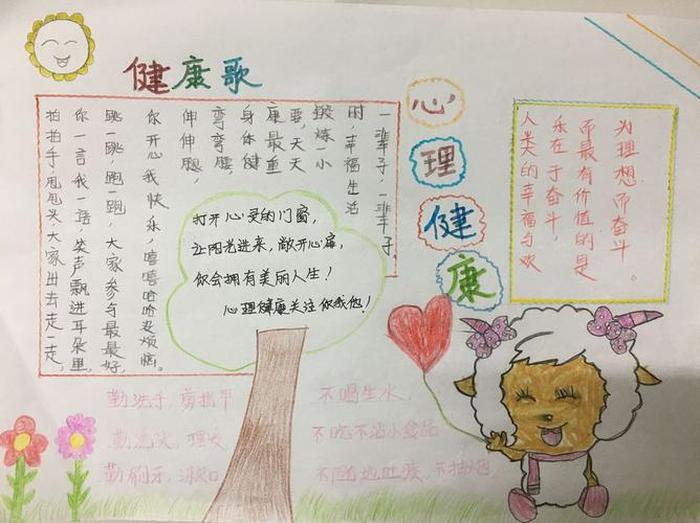 健康歌
拍拍手,甩甩头,大家出去走一走,
你一言我一语,笑声飘进耳朵里,
跳一跳,跑一跑,大家参与最最好,
你开心我快乐,嘻嘻哈哈没烦恼。
伸伸腿,
弯弯腰,
身体健
康最重
要,天天
锻炼一小
时,幸福生活
一辈子,一辈子。
打开心灵的门窗,
让阳光进来,敞开心扉,
你会拥有美丽人生!
心理健康关注你我他!
心
理
健
康
人类的幸福与欢
乐在于奋斗,
而最有价值的是
为理想而奋斗。
勤洗手,剪指甲
勤洗头,理发
勤刷牙,漱口
不喝生水,
不吃不洁小食品
不随地吐痰,不抽烟,